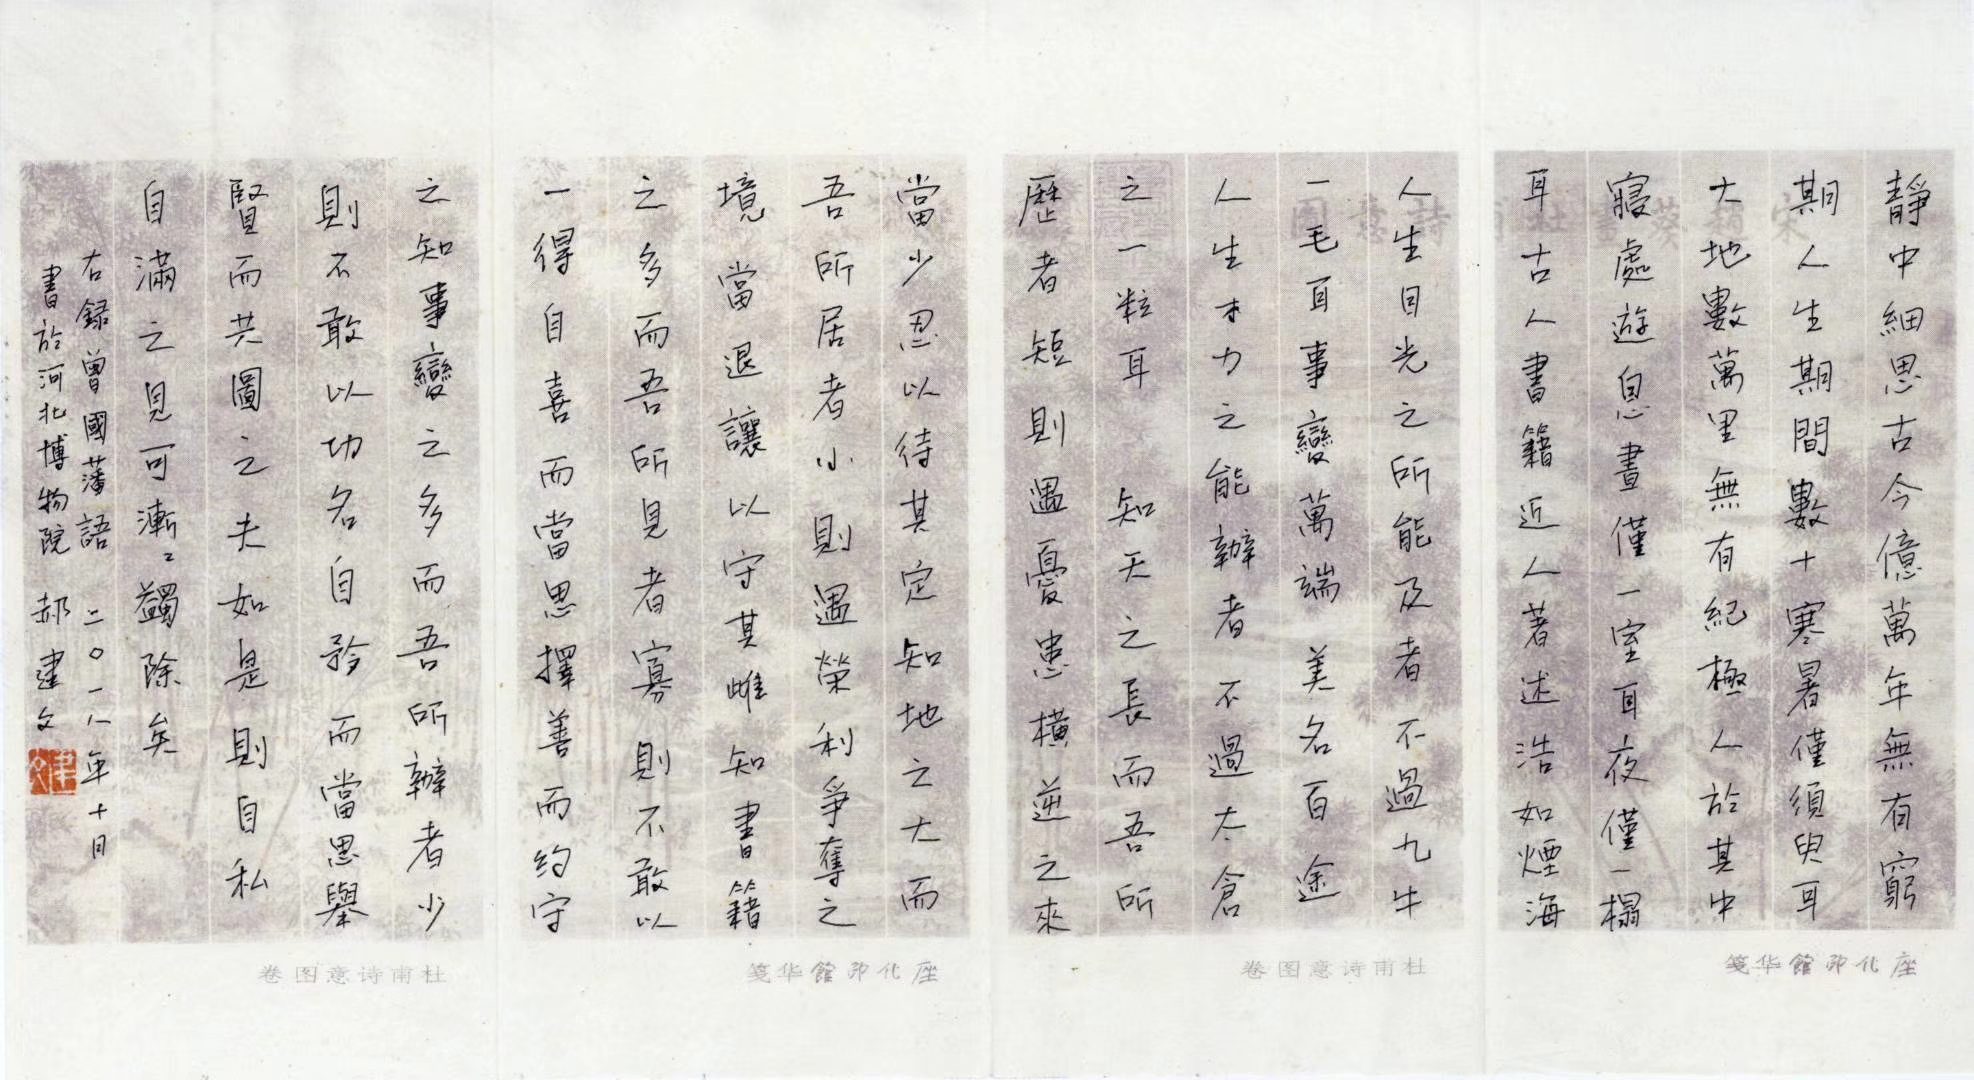 靜中細思古今億萬年無有窮
期人生期間數十寒暑僅須臾耳
大地數萬里無有紀極人於其中
寢處遊息晝僅一室耳夜僅一榻
耳古人書籍近人著述浩如煙海
人生目光之所能及者不過九牛
一毛耳事變萬端美名百途
人生才力之能辦者不過太倉
之一粒耳知天之長而吾所
歷者短則遇憂患橫逆之來
當少忍以待其定知地之大而
吾所居者小則遇榮利爭奪之
境當退讓以守其雌知書籍
之多而吾所見者寡則不敢以
一得自喜而當思擇善而約守
之知事變之多而吾所辦者少
則不敢以功名自矜而當思舉
賢而共圖之夫如是則自私
自滿之見可漸〻蠲除矣
右録曾國藩語 二〇一八年十月
書於河北博物院 郝建文
座化邜館华笺
杜甫诗意图卷
座化邜館华笺
杜甫诗意图卷